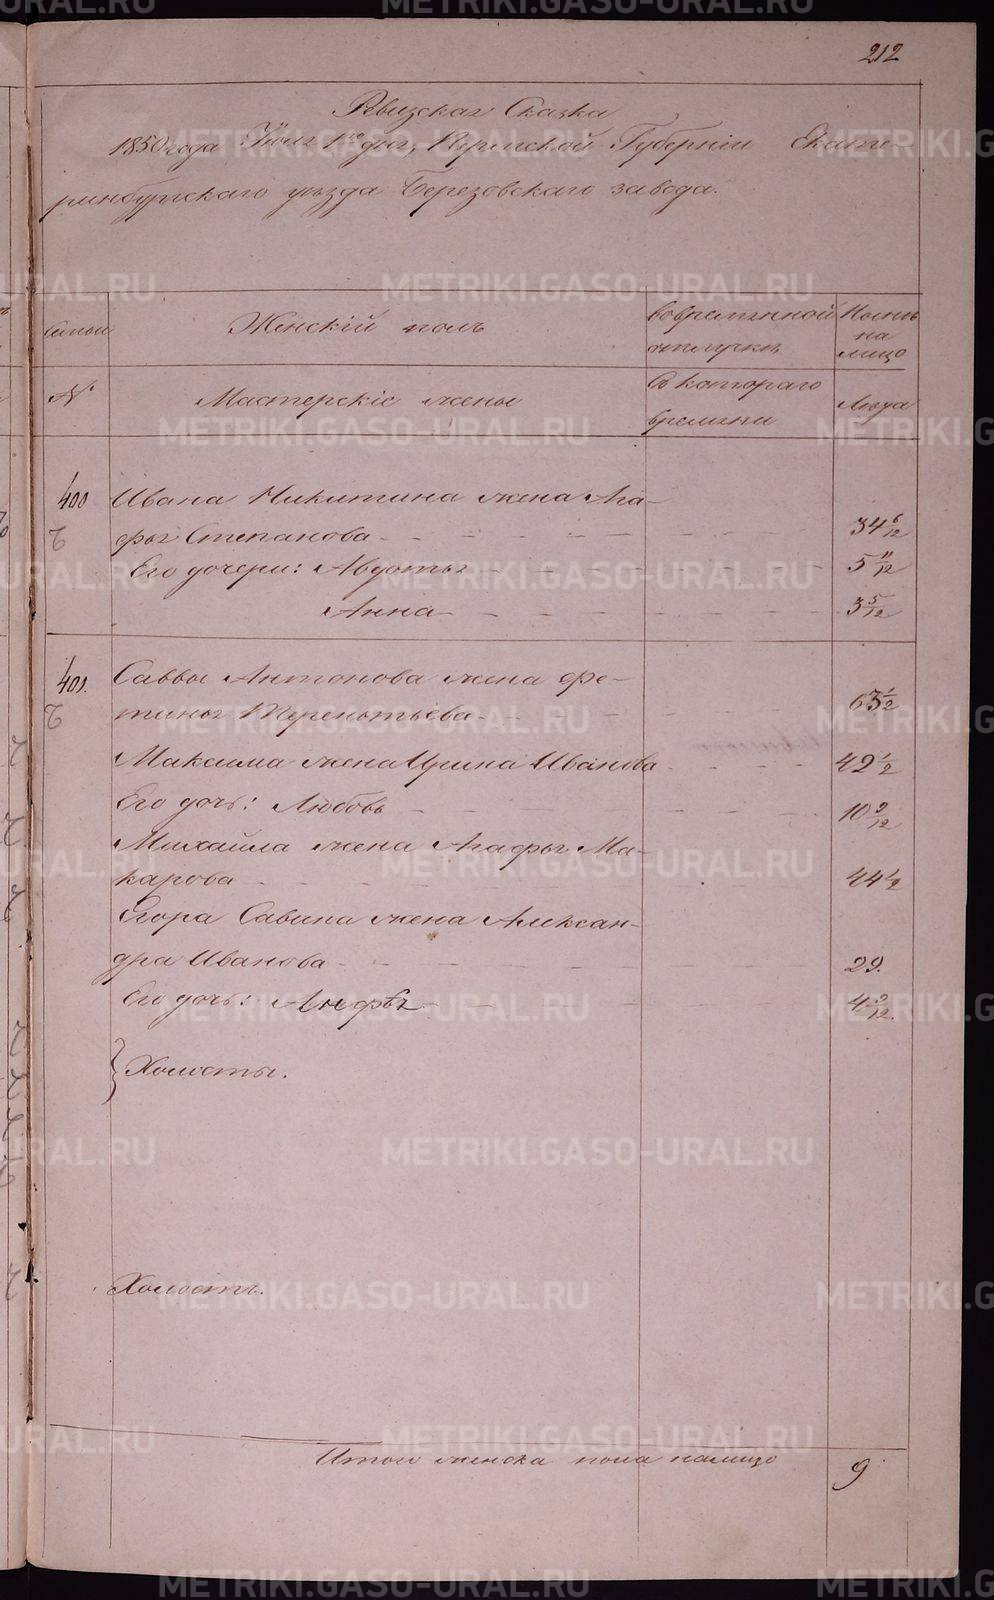 212
Рвизская Сказка
1850 года Июля 1го дня, Пермской Губернiи Екате
ринбургскаго уезда Березовскаго завода.
Семьи
Женскiй полъ
Вовременной
отлучки
Ноне
на
лицо
№
Мастерскiе жены
Съ котораго
времени
Лета
400
Ивана Никитина жена Ага-
фья Степанова 34 6/12
Его дочери: Авдотья 5 11/12
Анна 3 5/12
401.
Саввы Антонова жена Фе-
тинья Терентьева 63 1/2
Максима жена Ирина Иванова 42 1/2
Его дочь: Любовь 10 9/12
Михайла жена Агафья Ма-
карова 44 1/2
Егора Савина жена Алексан-
дра Иванова 29.
Его дочь: Анфья 4 9/12.
Холосты.
Холостъ.
Итого женска пола налицо 9
METRIKI.GASO-URAL.RU